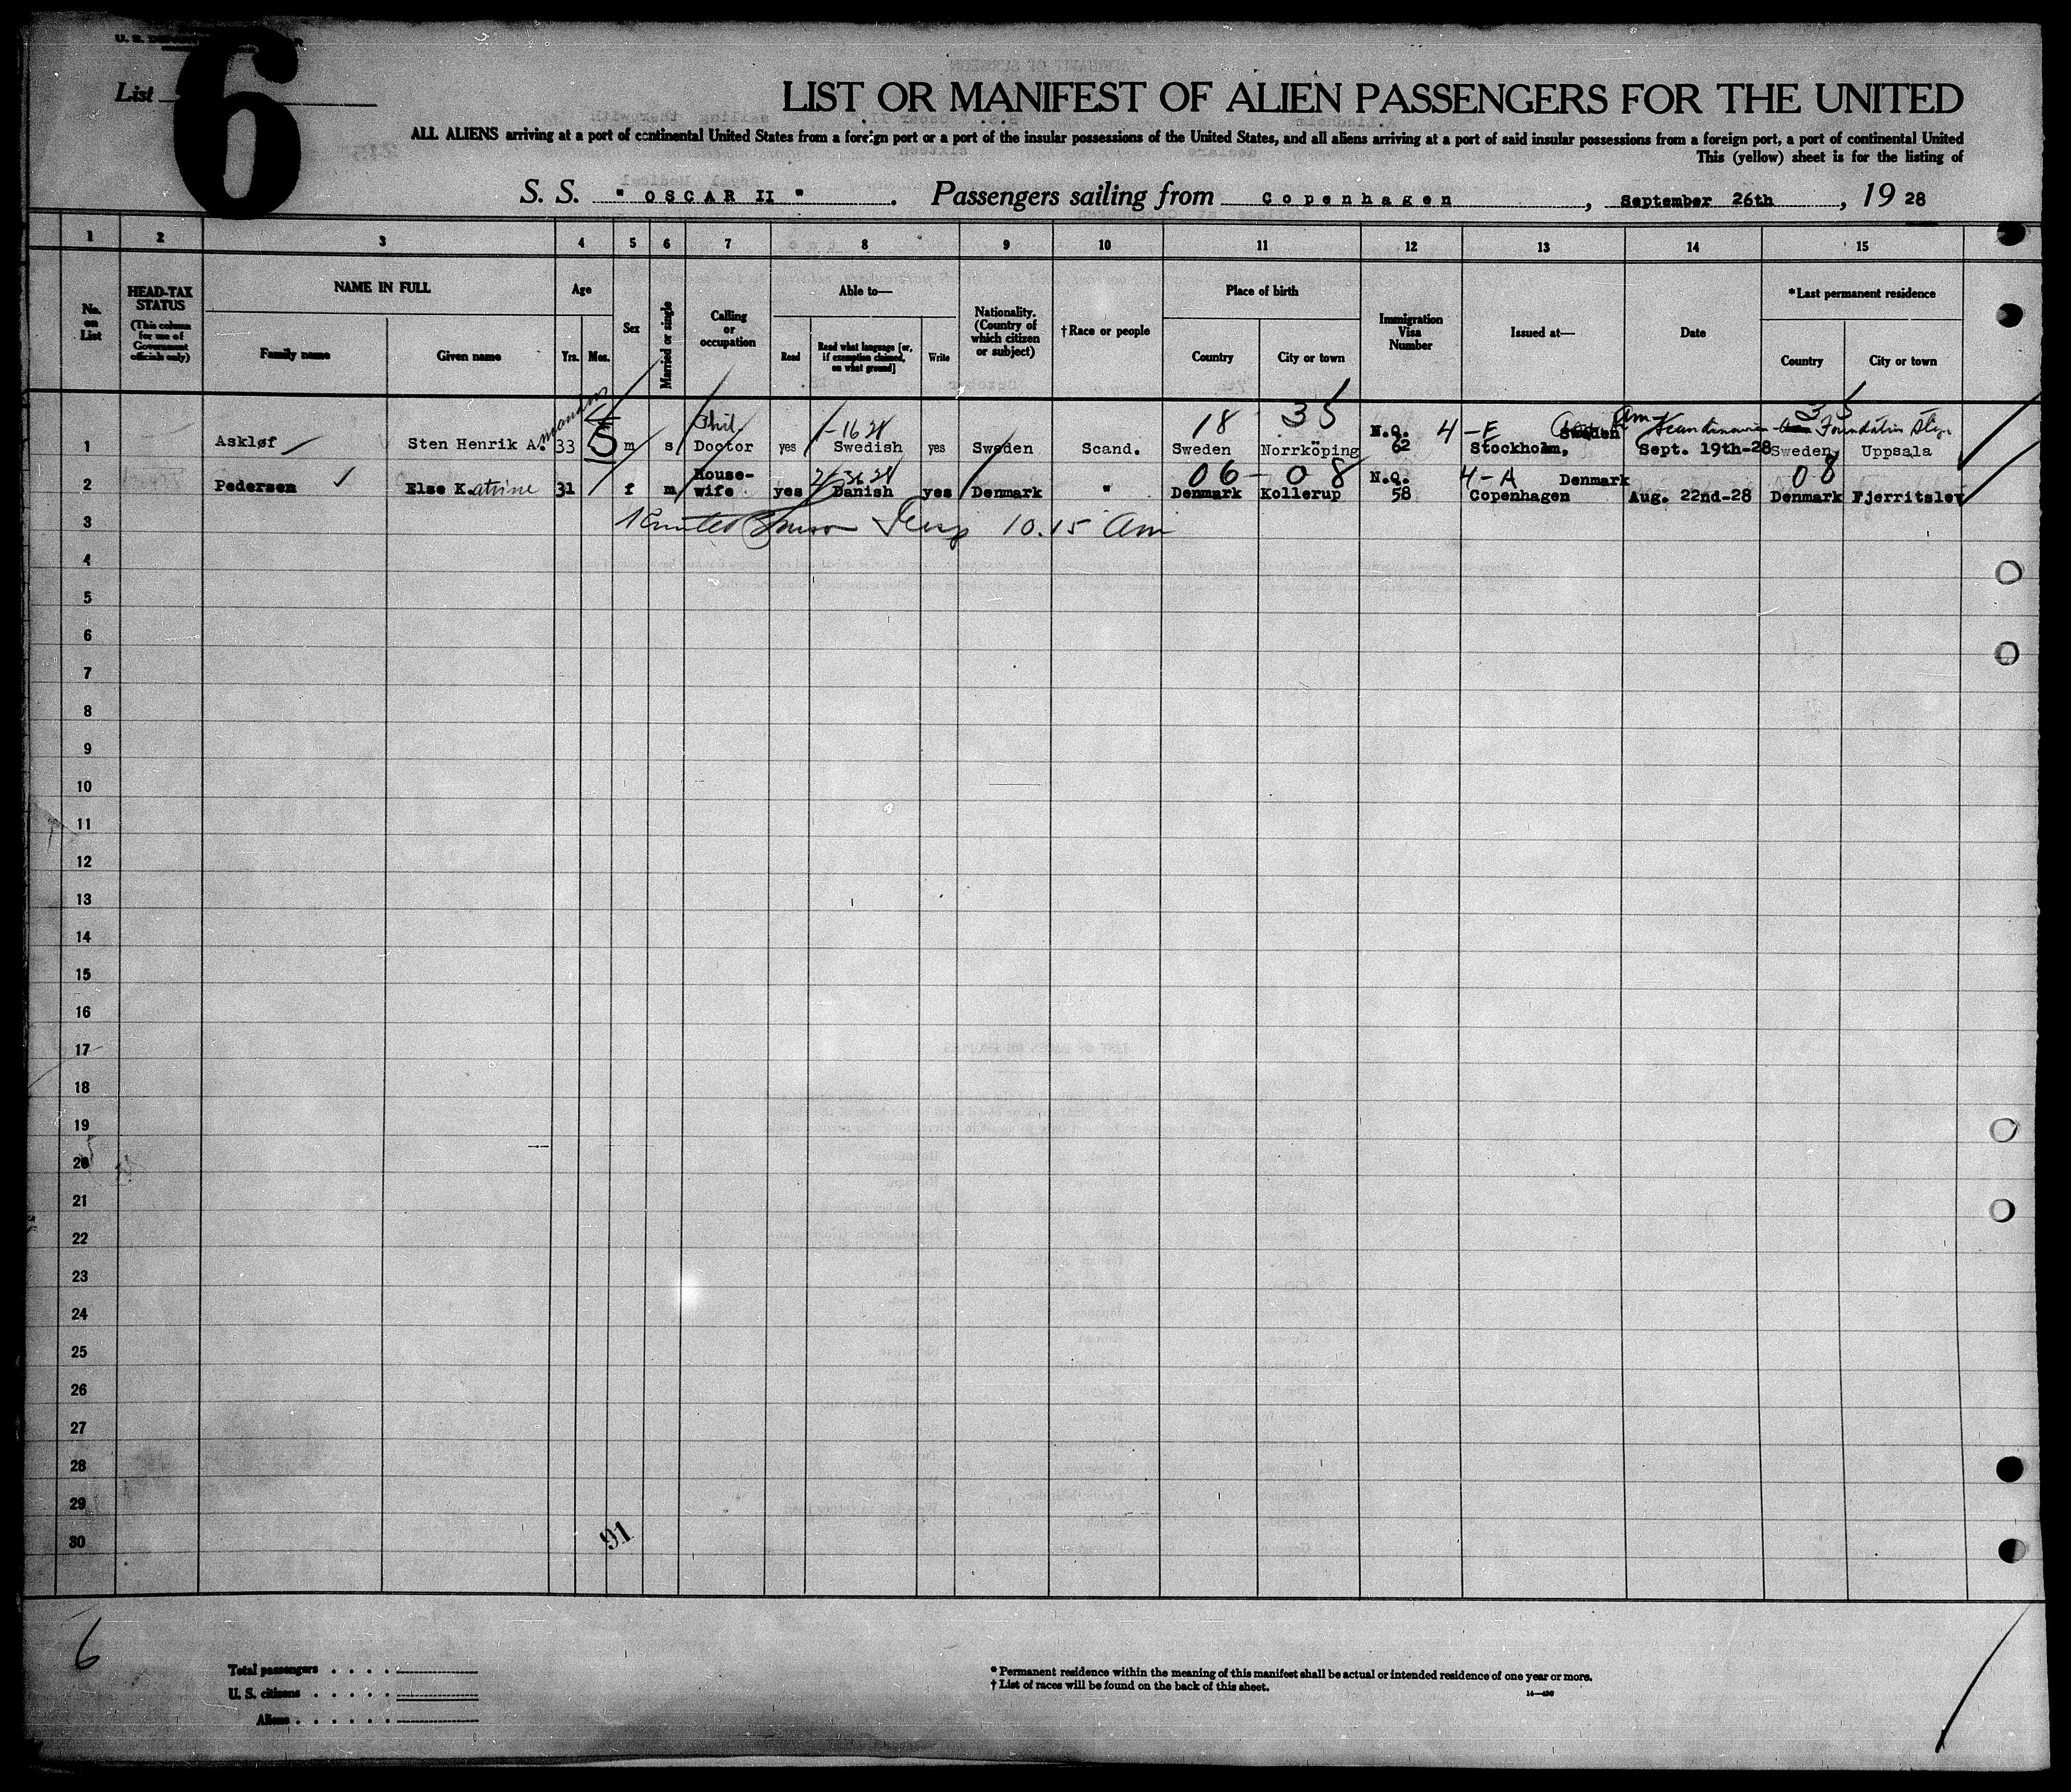 List 6
LIST OR MANIFEST OF ALIEN PASSENGERS FOR THE UNITED
ALL ALIENS arriving at a port of continental United States from a foreign port or a port of the insular possessions of the United States, and all aliens arriving at a port of said insular possessions from a foreign port, a port of continental United
This (yellow) sheet is for the listing of
S. S. " OSCAR II " . Passengers sailing from Copenhagen , September 26th , 19 28
1 2 3 4 5 6 7 8 9 10 11 12 13 14 15
No. on List
HEAD-TAX STATUS (This column for use of Government officials only)
NAME IN FULL
Family name Given name
Age
Yrs. Mos.
Sex
Married or single
Calling or occupation
Able to—
Read Read what language [or, if exemption claimed, on what ground] Write
Nationality. (Country of which citizen or subject)
†Race or people
Place of birth
Country City or town
Immigration Visa Number
Issued at—
Date
*Last permanent residence
Country City or town
Phil. 1-16 28 18 35 Am- Scandinavian Foundation 35
1 Askløf Sten Henrik A. 33 5 m s Doctor yes Swedish yes Sweden Scand. Sweden Norrköping N.Q. 62 4-E Stockholm, Sweden Sept. 19th-28 Sweden, Uppsala
2 Pedersen Else K.atrine 31 f m House-wife yes Danish yes Denmark " Denmark Kollerup N.Q. 58 4-A Copenhagen Denmark Aug. 22nd-28 Denmark Fjerritslev
06 - 08 08
3 10.15 Am
4
5
6
7
8
9
10
11
12
13
14
15
16
17
18
19
20
21
22
23
24
25
26
27
28
29
30
91
6
Total passengers . . . .
U. S. citizens . . . . .
Aliens . . . . . .
* Permanent residence within the meaning of this manifest shall be actual or intended residence of one year or more.
† List of races will be found on the back of this sheet.